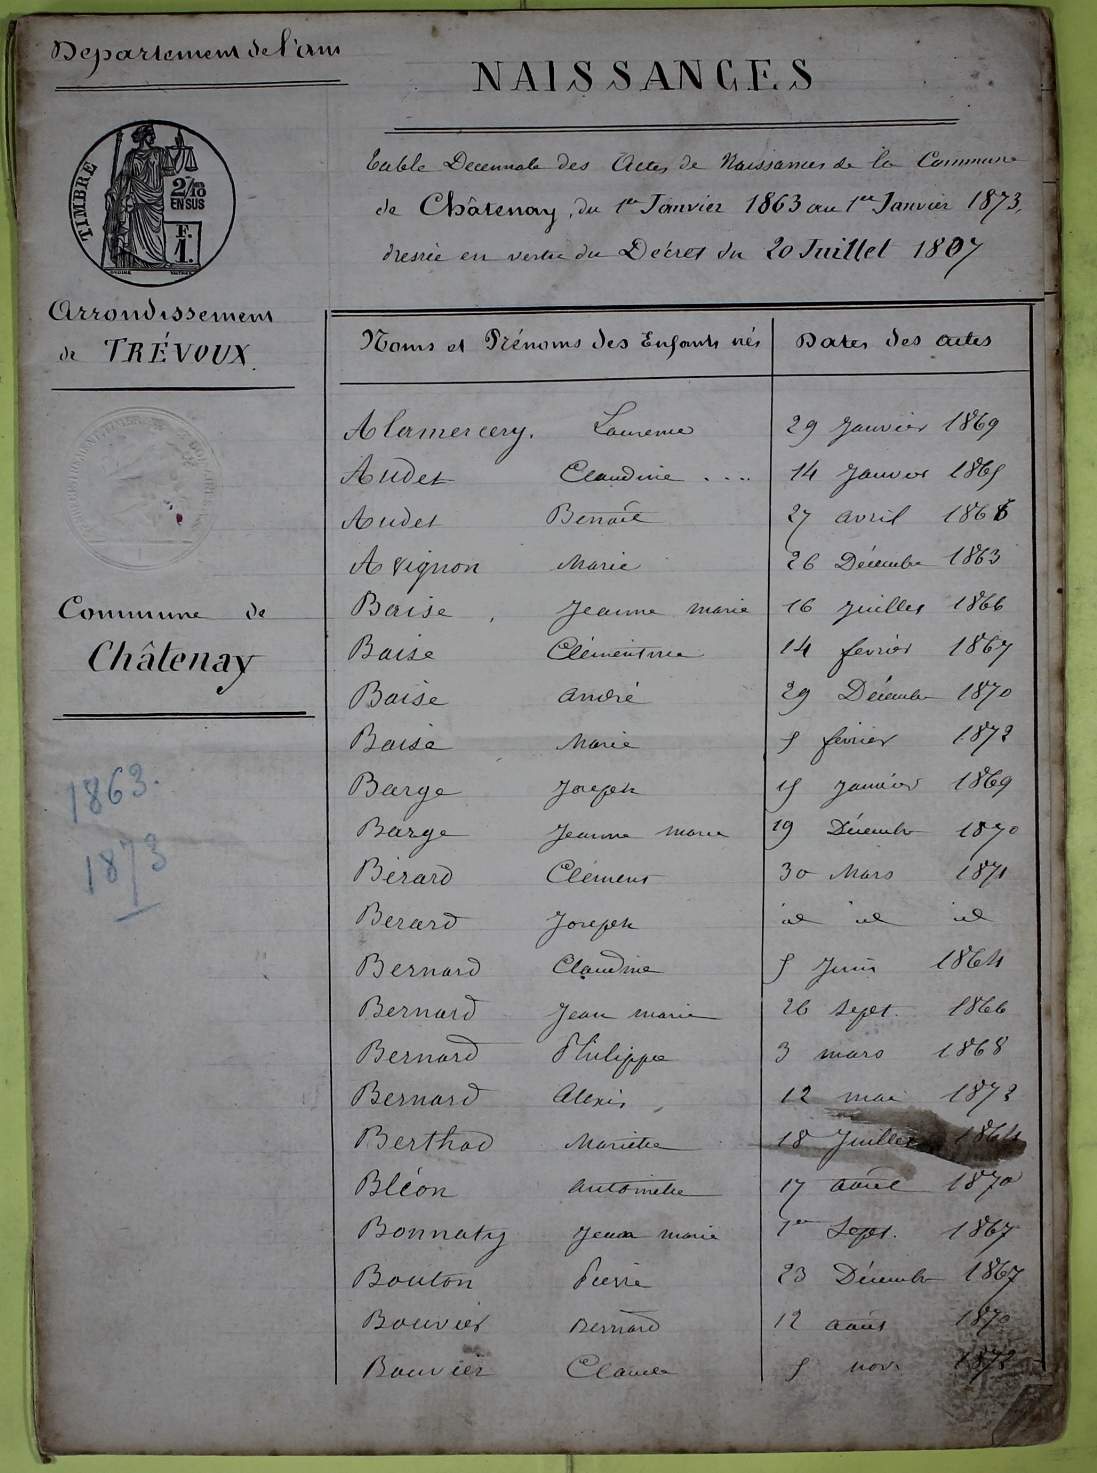 Departement de l'ain
NAISSANCES
TIMBRE
2/10
EN SUS
F.
1.
Table Decennale des Actes de Naissances de la Commune
de Châtenay, du 1er Janvier 1863 au 1er Janvier 1873,
dressée en vertu du Décret du 20 Juillet 1807
Arrondissement
de TRÉVOUX.
Commune de
Châtenay
1863.
1873
Noms et Prénoms des Enfants nés Dates des actes
Alamercery. Laurence 29 Janvier 1869
Audet Claudine .... 14 Janvier 1865
Audet Benoît 27 avril 1868
Avignon Marie 26 Décembre 1863
Baise, Jeanne marie 16 Juillet 1866
Baise Clémentine 14 février 1867
Baise andré 29 Décembre 1870
Baise Marie 5 février 1872
Barge Joseph 15 Janvier 1869
Barge Jeanne marie 19 Décembre 1870
Bérard Clément 30 Mars 1871
Berard Joseph id id id
Bernard Claudine 5 Juin 1864
Bernard Jean marie 26 Sept. 1866
Bernard Philippe 3 mars 1868
Bernard Alexis 12 mai 1872
Berthod Mariette 18 Juillet 1864
Bléon antoinette 17 août 1870
Bonnaty Jean marie 1er Sept. 1867
Bouton Pierre 23 Décembre 1867
Bouvier Bernard 12 août 1870
Bouvier Claude 5 nov. 1872